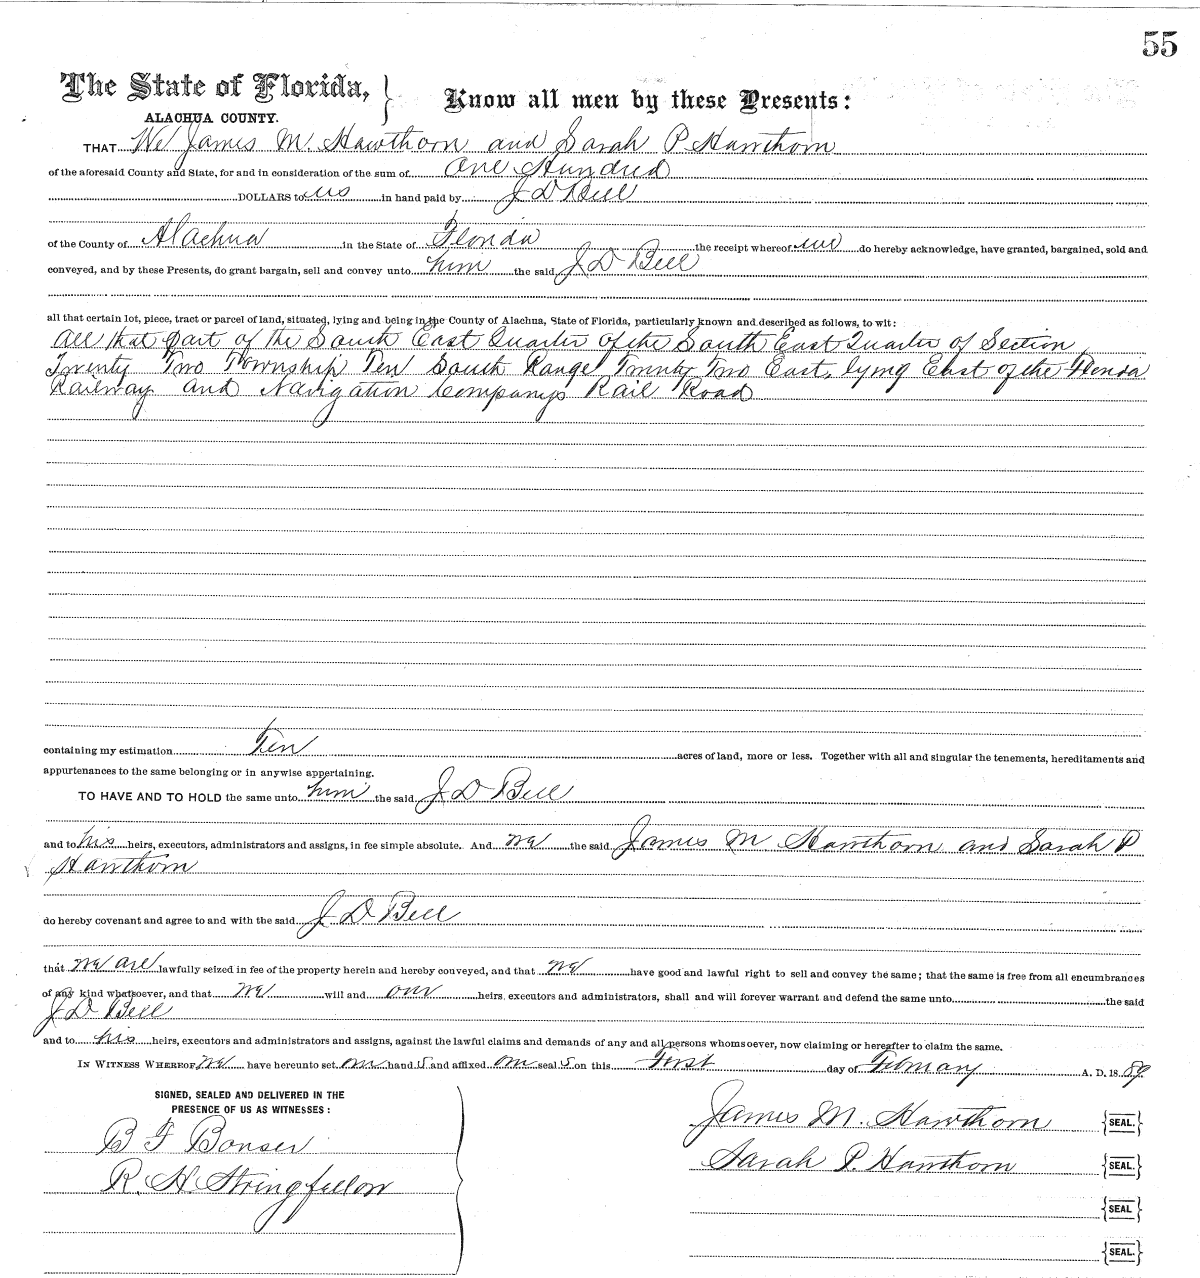 55
The State of Florida, } Know all men by these Presents:
ALACHUA COUNTY.
THAT We James M. Hawthorn and Sarah P Hawthorn
of the aforesaid County and State, for and in consideration of the sum of One Hundred
DOLLARS to us in hand paid by J D Bell
of the County of Alachua in the State of Florida the receipt whereof we do hereby acknowledge, have granted, bargained, sold and
conveyed, and by these Presents, do grant bargain, sell and convey unto him the said J D Bell
all that certain lot, piece, tract or parcel of land, situated, lying and being in the County of Alachua, State of Florida, particularly known and described as follows, to wit:
All that part of the South East Quarter of the South East Quarter of Section
Twenty Two Township Ten South Range Twenty Two East, lying East of the Florida
Railway and Navigation Companys Rail Road
containing my estimation Ten acres of land, more or less. Together with all and singular the tenements, hereditaments and
appurtenances to the same belonging or in anywise appertaining.
TO HAVE AND TO HOLD the same unto him the said J D Bell
and to his heirs, executors, administrators and assigns, in fee simple absolute. And we the said James M Hawthorn and Sarah P
Hawthorn
do hereby covenant and agree to and with the said J D Bell
that we are lawfully seized in fee of the property herein and hereby conveyed, and that we have good and lawful right to sell and convey the same; that the same is free from all encumbrances
of any kind whatsoever, and that we will and our heirs, executors and administrators, shall and will forever warrant and defend the same unto the said
J D Bell
and to his heirs, executors and administrators and assigns, against the lawful claims and demands of any and all persons whomsoever, now claiming or hereafter to claim the same.
IN WITNESS WHEREOF we have hereunto set our hand s and affixed our seal s on this First day of February A. D. 18 89
SIGNED, SEALED AND DELIVERED IN THE
PRESENCE OF US AS WITNESSES:
James M. Hawthorn {SEAL.}
B F Bonser
Sarah P. Hawthorn {SEAL.}
R. H. Stringfellow
{SEAL}
{SEAL.}